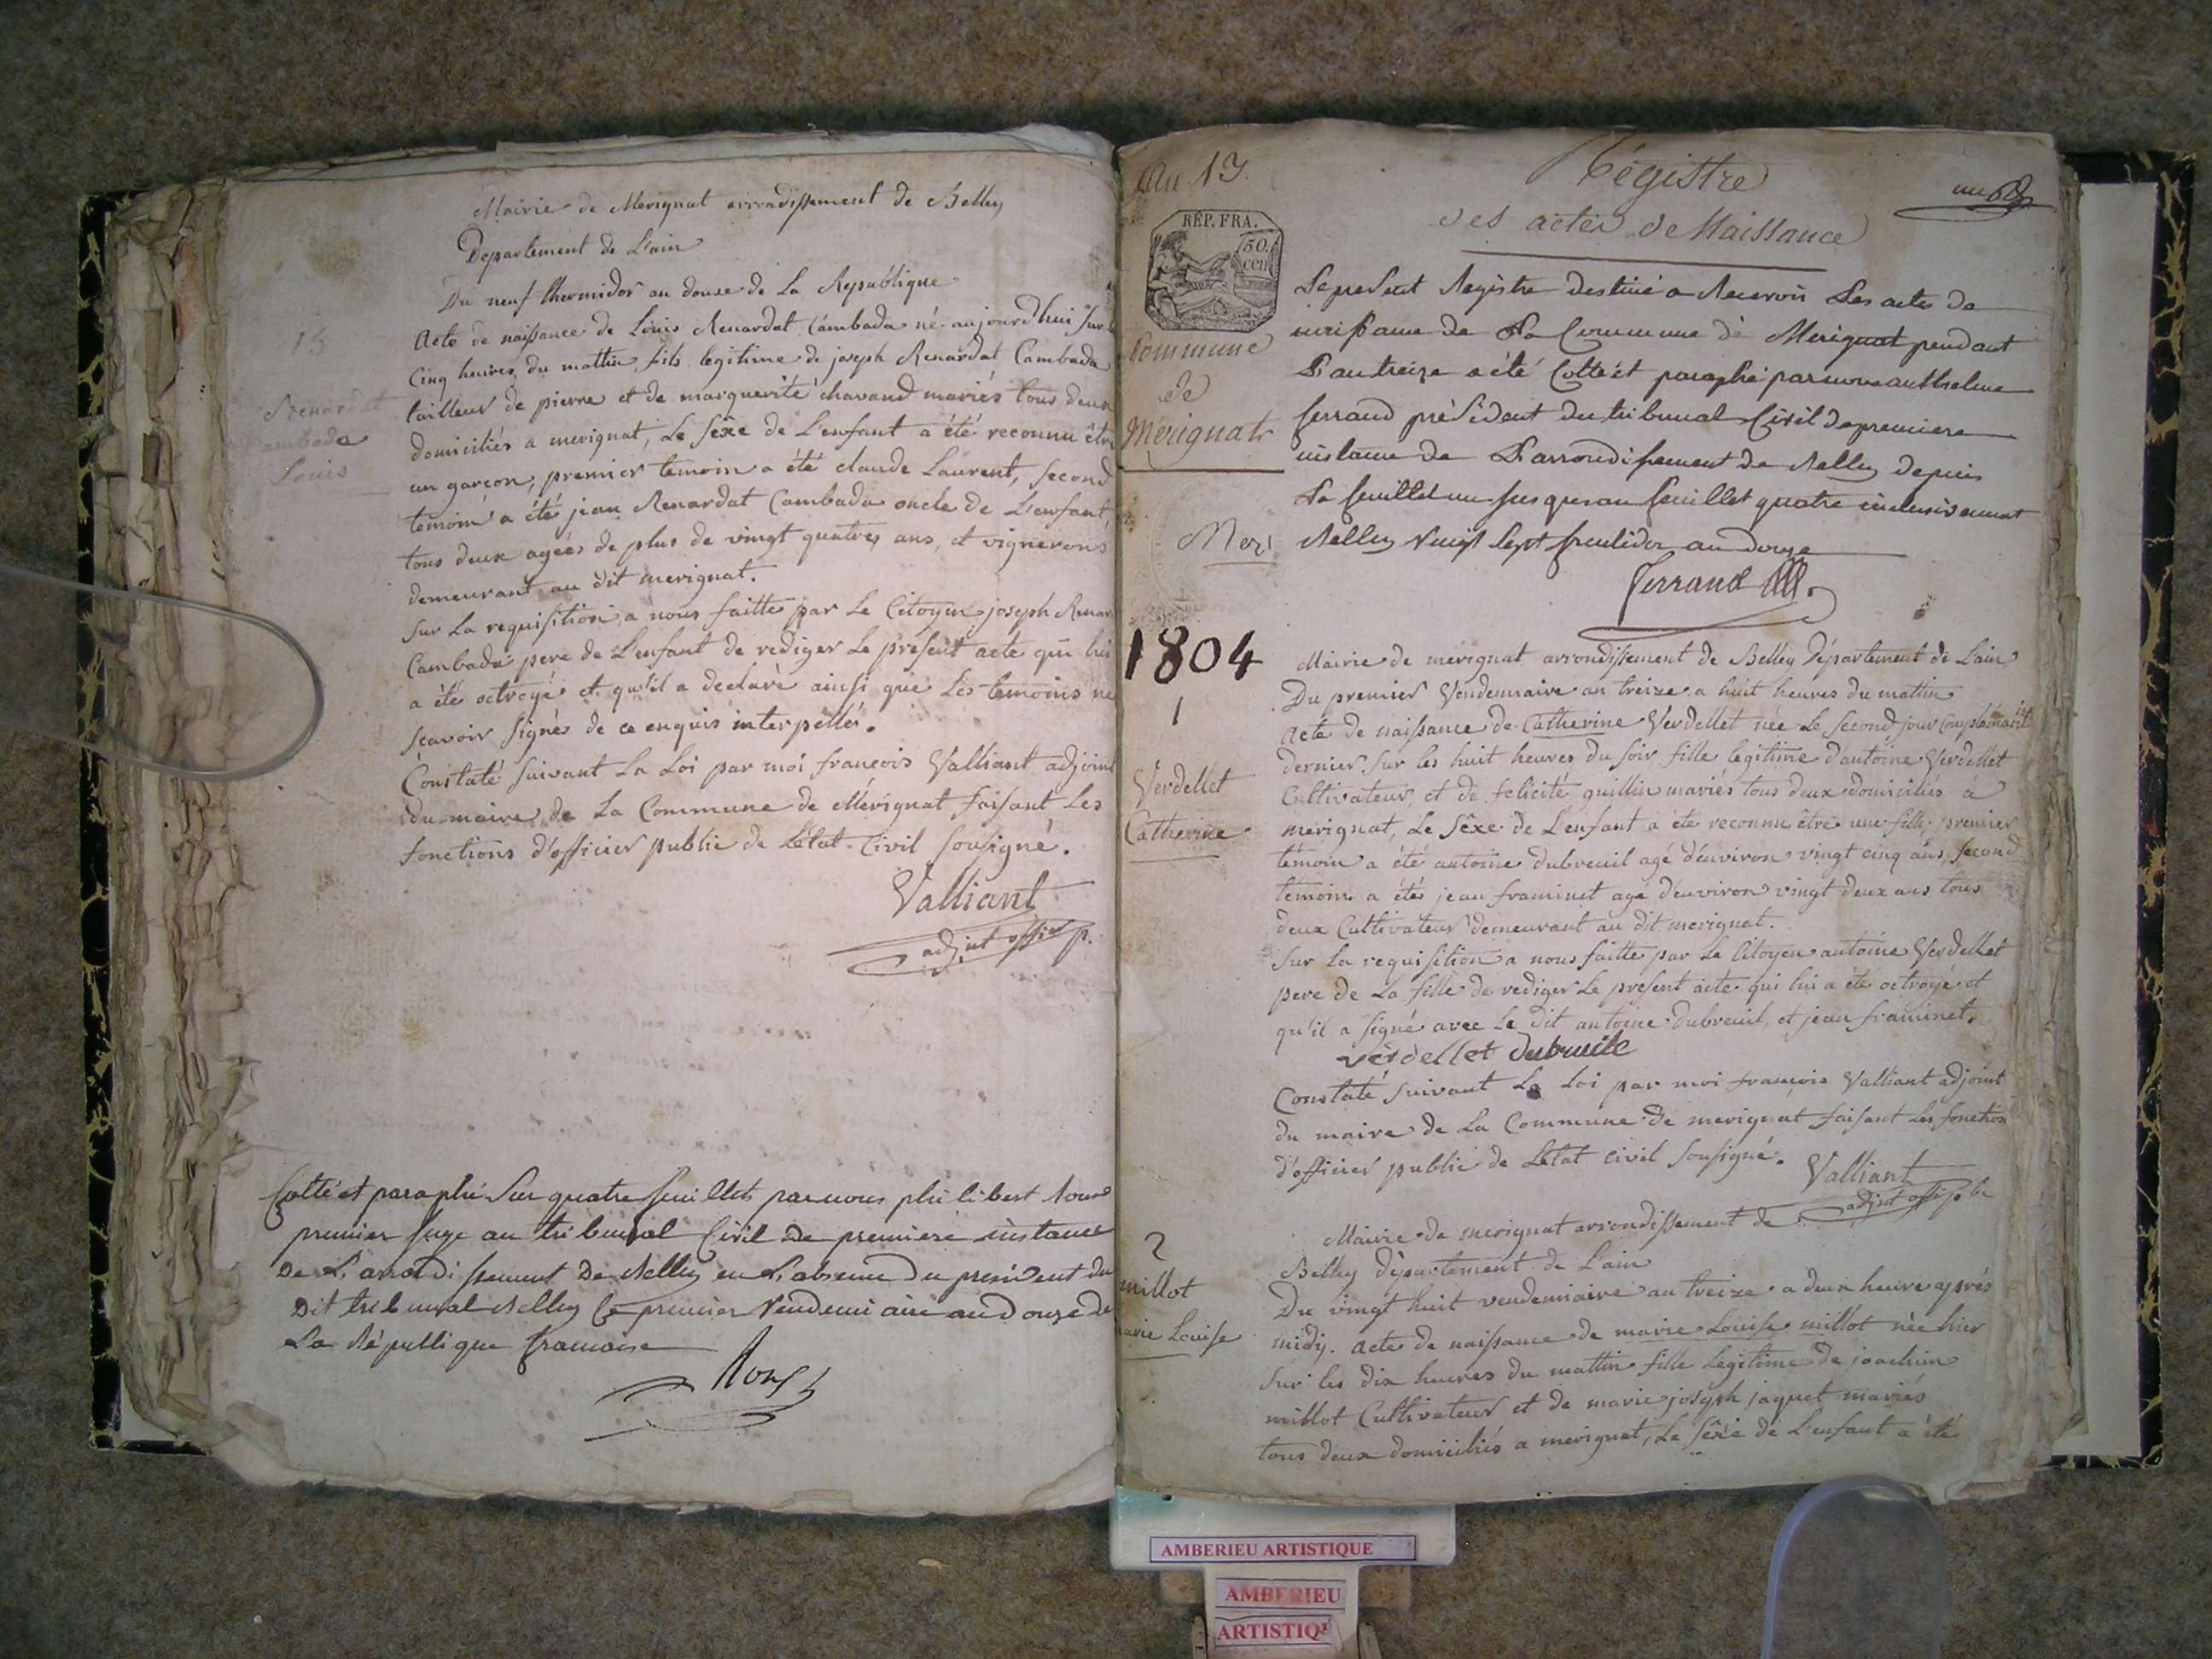 Mairie de Merignat arrondissement de Belley
Departement de L'ain
Du neuf thermidor an douze de La Republique
15
Renardat
Cambada
Louis
Acte de naissance de Louis Renardat Cambada né aujourdhui sur
Cinq heures du mattin fils legitime de joseph Renardat Cambada
tailleur de pierre et de marguerite chavand mariés tous deux
domiciliés a merignat, Le sêxe de L'enfant a été reconnu être
un garçon, premier temoin a été claude Laurent, second
temoin a été jean Renardat Cambada oncle de L'enfant,
tous deux agées de plus de vingt quatres ans, et vignerons
demeurant au dit merignat.
Sur La requisition a nous faitte par Le Citoyen joseph Renar
Cambada pere de L'enfant de rediger Le present acte qui lui
a été octroyé et qu'il a declaré ainsi que Les temoins ne
scavoir signés de ce enquis interpellés.
Constaté suivant La Loi par moi francois Valliant adjoint
du maire de La Commune de Mérignat faisant Les
fonctions d'officier public de L'état Civil sousigné.
Valliant
adjint offier p.
Cotté et paraphé sur quatre feuillets par nous philibert Roux
premier juge au tribunal Civil de premiere instance
De L'arrondissement De Belley en L'absence Du president du
Dit tribunal Belley Le premier Vendemiaire an Douze de
La République francaise
Roux
An 13.
Régistre
des actes de Naissance
un
RÉP. FRA.
50.
cen
Commune
de
Mérignat
Meri
Le present Registre destiné a Recevoir Les actes de
naissance de La Commune de Merignat pendant
L'an treize a été Cotté et paraphé par nous anthelme
ferrand président du tribunal Civil de premiere
instance de L'arrondissement de Belley depuis
Le feuillet un jusques au feuillet quatre inclusivement
Belley Vingt sept fructidor an douze
ferrand
1804
1
Verdellet
Catherine
Mairie de merignat arrondissement de Belley Département de L'ain
Du premier Vendemiaire an treize a huit heures du mattin
Acte de naissance de Catherine Verdellet née Le second jour Complémentaire
dernier sur les huit heures du soir fille legitime d'antoine Verdellet
Cultivateur, et de felicité guillin mariés tous deux domiciliés a
merignat, Le sêxe de L'enfant a été reconnu être une fille, premier
témoin a été antoine dubreuil agé d'environ vingt cinq ans, second
témoin a étés jean framinet agé d'environ vingt deux ans tous
deux Cultivateur demeurant au dit merignat.
Sur La requisition a nous faitte par Le Citoyen antoine Verdellet
pere de La fille de rediger Le present acte qui lui a été octroyé et
qu'il a signé avec Le dit antoine dubreuil, et jean framinet.
verdellet dubruile
Constaté suivant La Loi par moi francois Valliant adjoint
du maire de La Commune de merignat faisant Les fonction
d'officier public de L'état civil sousigné. Valliant
adjint offi p be
2
millot
marie Louise
Mairie de merignat arrondissement de
Belley département de L'ain
Du vingt huit vendemiaire an treize a deux heure aprés
midy. acte de naissance de marie Louise millot née hier
sur les dix heures du mattin fille Legitime de joachim
millot Cultivateur et de marie joseph jaquet mariés
tous deux domiciliés a merignat, Le sêxe de L'enfant a été
AMBERIEU ARTISTIQUE
AMBERIEU
ARTISTIQ